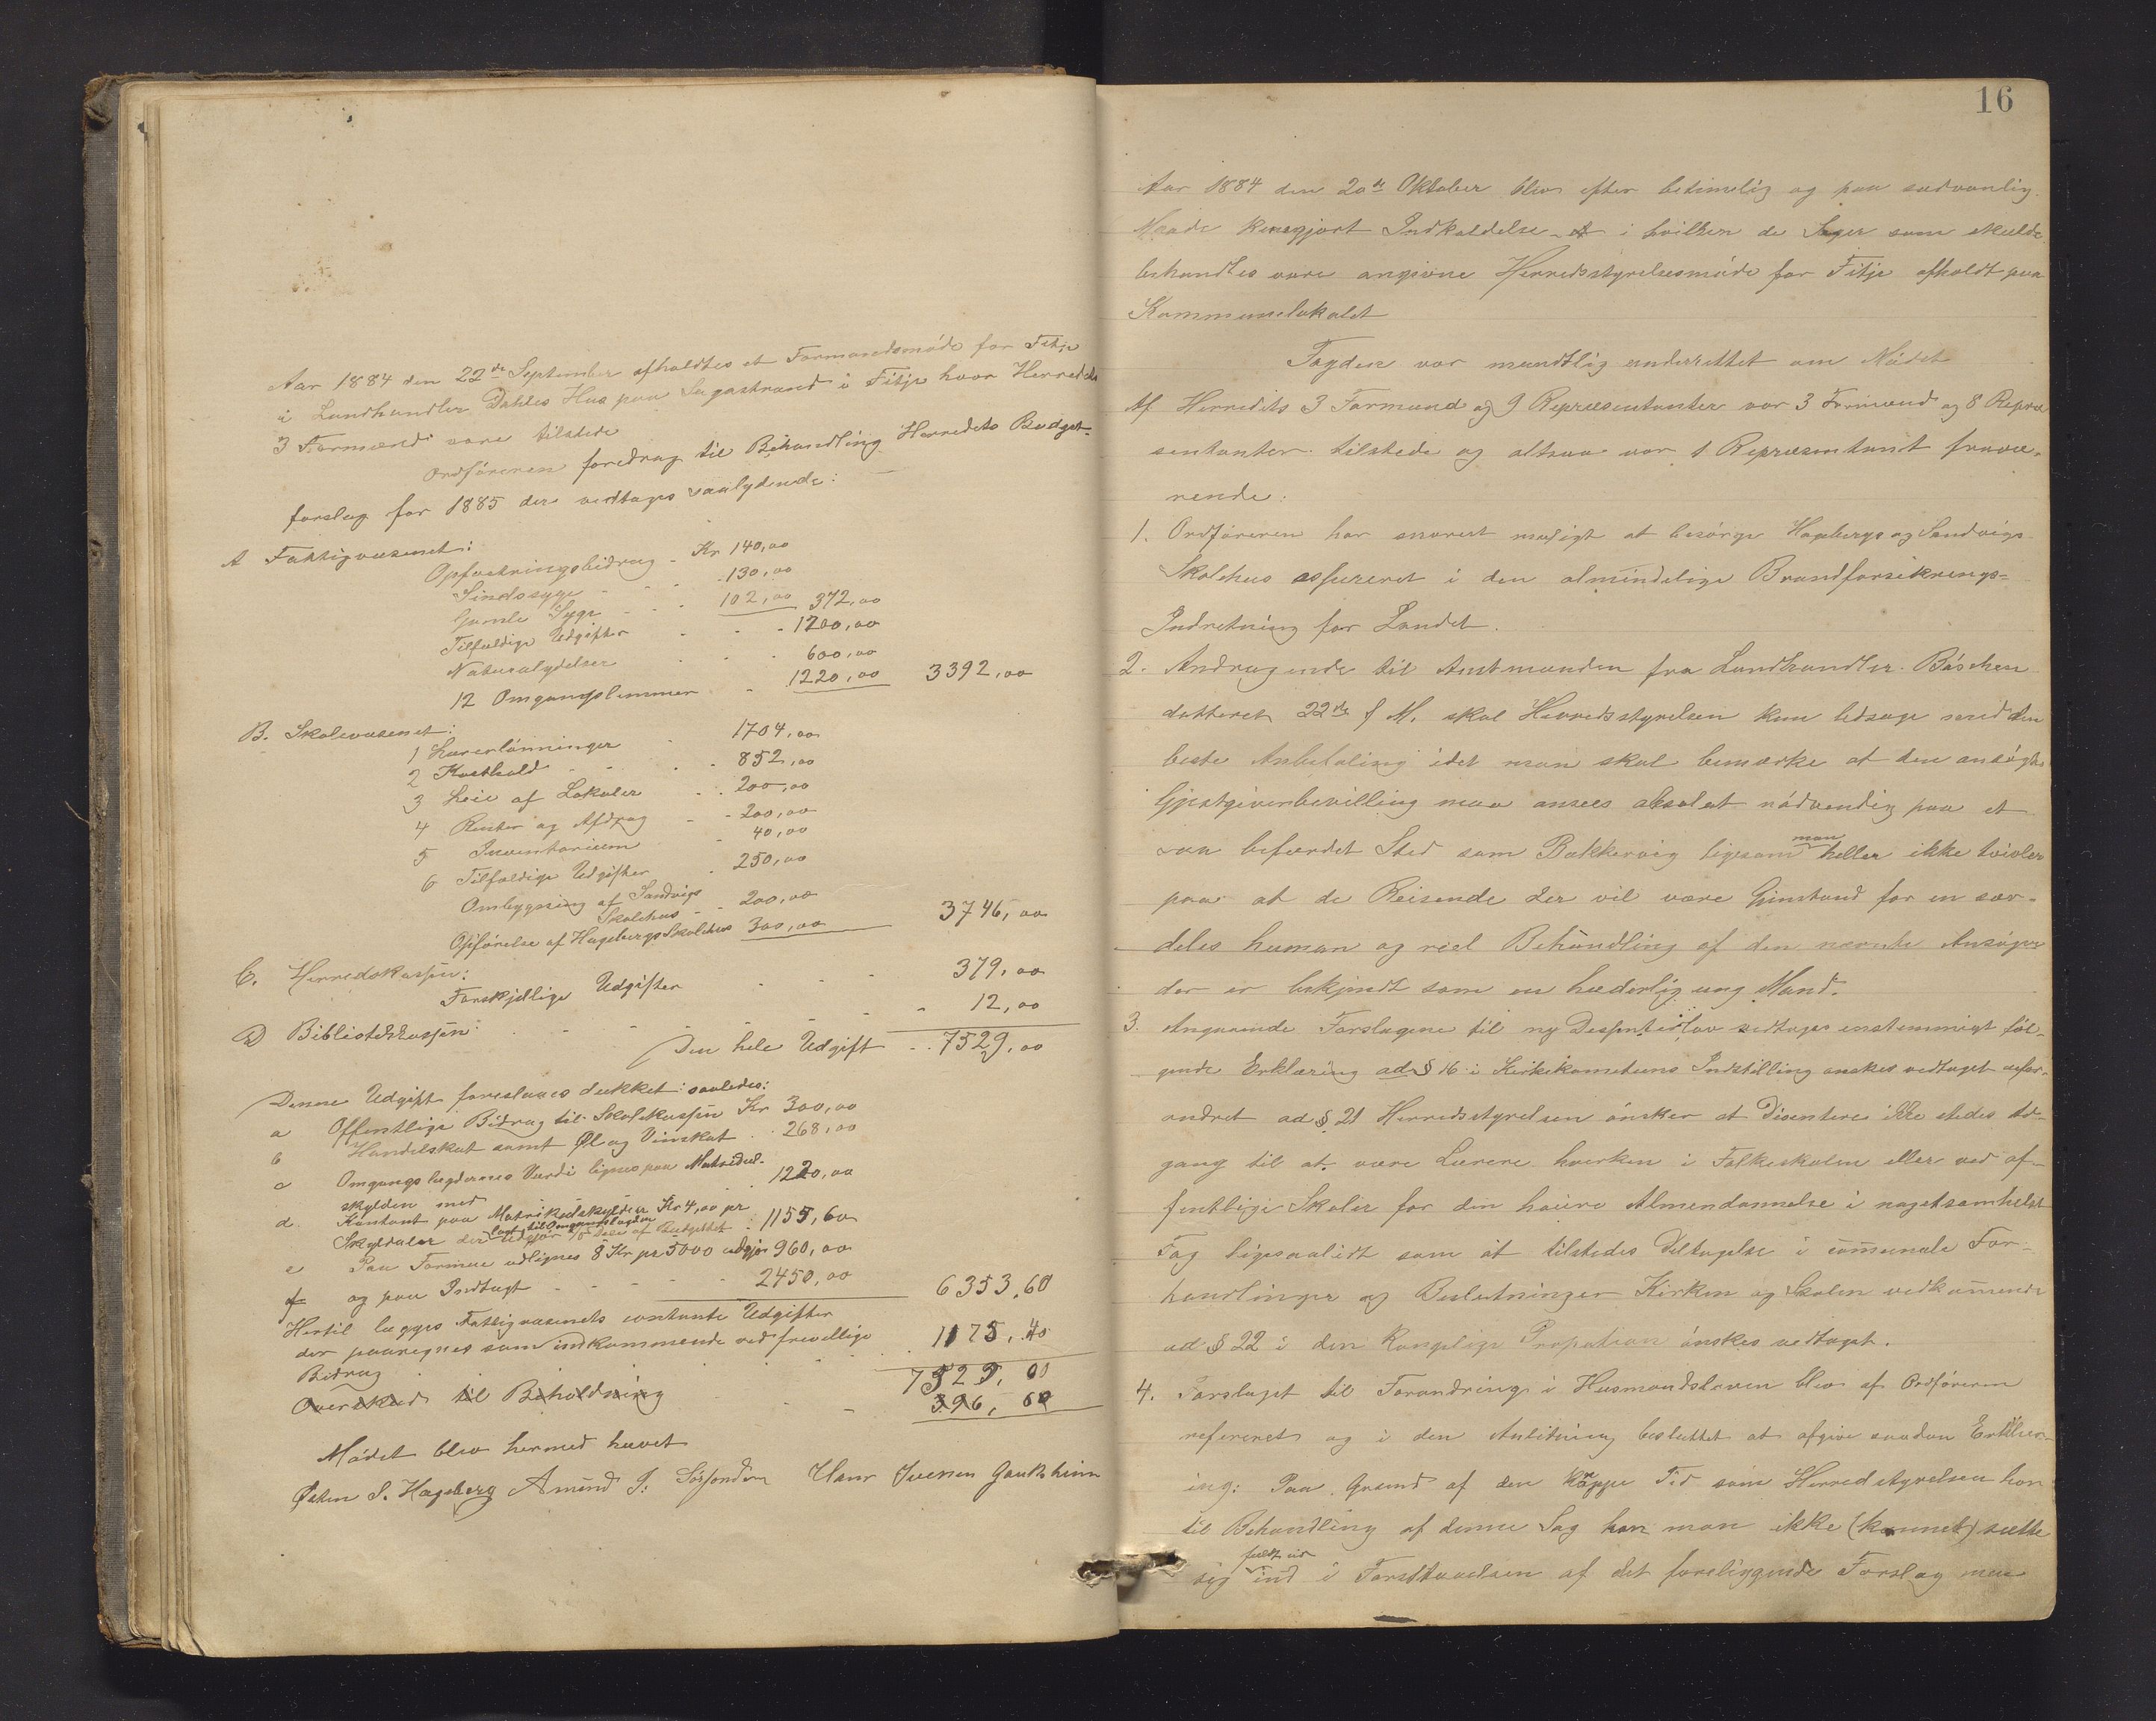 Aar 1884 den 22de September afholdtes et Formandsmöde for Fitje
i Landhandler Dahles Hus paa Sagastrand i Fitje hvor Herredets
3 Formænd vare tilstede
Ordföreren foredrog til Behandling Herredets Budget-
forslag for 1885 der vedtoges saalydende:
A Fattigvæsenet:
Opfostringsbidrag - Kr 140,00
Sindssyge - - - 130,00
Gamle Syge - - - 102,00 372,00
Tilfældige Udgifter - - - 1200,00
Naturalydelser - - - 600,00
12 Omgangslemmer - 1220,00 3392,00
B. Skolevæsenet:
1 Lærerlönninger - 1704,00
2 Kosthold - - - 852,00
3 Leie af Lokaler - - 200,00
4 Renter og Afdrag - - 200,00
5 Inventarium - 40,00
6 Tilfældige Udgifter - 250,00
Ombygning af Sandvigs
Skolehus - - 200,00
Opförelse af Hagebergs Skolehus 300,00 3746,00
C. Herredskassen:
Forskjellige Udgifter - - - 379,00
D Bibliotekkassen: - - - - - 12,00
Den hele Udgift - - 7529,00
Denne Udgift foreslaaes dækket saaledes:
a Offentlige Bidrag til Skolekassen Kr 300,00
b Handelskat samt Øl og Vinskat . 268,00
c Omgangslægdernes Værdi lignes paa Matrikul-
skylden med 1220,00
d. Kontant paa Matrikulskylden Kr 4,00 pr
Skyldaler der lagt til Omgangslægden udgjör 1/5 Del af Budgettet . 1155,60
e Paa Formue udlignes 8 Kr pr 5000 udgjör 960,00
f og paa Indtægt - - - - 2450,00 6353,60
Hertil lægges Fattigvæsenets contante Udgifter
der paaregnes som indkommende ved frivillige
Bidrag - - - - 1175,40
7529,00
Overskud til Beholdning - - 396,60
Mödet blev hermed hævet
Østen S. Hageberg Amund J. Hans Iversen Gaukheim
16
Aar 1884 den 20de Oktober blev efter betimelig og paa sædvanlig
Maade kungjort Indkaldelse i hvilken de Sager som skulde
behandles vare angivne Herredsstyrelsesmöde for Fitje afholdt paa
Kommunelokalet
Fogden var mundtlig underrettet om Mödet
Af Herredets 3 Formænd og 9 Repræsentanter var 3 Formænd og 8 Repræ
sentanter tilstede og altsaa var 1 Repræsentant fravæ-
rende:
1. Ordföreren har snarest muligt at besörge Hagebergs og Sandvigs
Skolehus assureret i den almindelige Brandforsikrings-
Indretning for Landet.
2. Andragende til Amtmanden fra Landhandler Böschen
datteret 22de f M. skal Herredsstyrelsen kun ledsage med den
beste Anbefaling idet man skal bemærke at den ansögte
Gjestgiverbevilling maa ansees absolut nödvendig paa et
saa befærdet Sted som Bakkervig ligesom man heller ikke tvivler
paa at de Reisende der vil være Gjenstand for en sær-
deles human og reel Behandling af den nævnte Ansöger
der er bekjendt som en hæderlig ung Mand.
3. Angaaende Forslagene til ny Dissenterlov vedtoges enstemmigt föl-
gende Erklæring ad § 16 i Kirkekomiteens Indstilling önskes vedtaget ufor-
andret ad § 21 Herredsstyrelsen önsker at Disentere ikke stedes Ad-
gang til at være Lærere hverken i Folkeskolen eller ved of-
fentlige Skoler for den höiere Almendannelse i nogetsomhelst
Fag ligesaalidt som at tilstedes Deltagelse i communale For-
handlinger og Beslutninger Kirken og Skolen vedkommende
ad § 22 i den Kongelige Propotion önskes vedtaget.
4. Forslaget til Forandring i Husmandsloven blev af Ordföreren
refereret og i den Anledning besluttet at afgive saadan Erklær-
ing: Paa Grund af den knappe Tid som Herredstyrelsen har
til Behandling af denne Sag har man ikke (kunnet) sætte
sig fuldt ud ind i Forstaaelsen af det foreliggende Forslag men